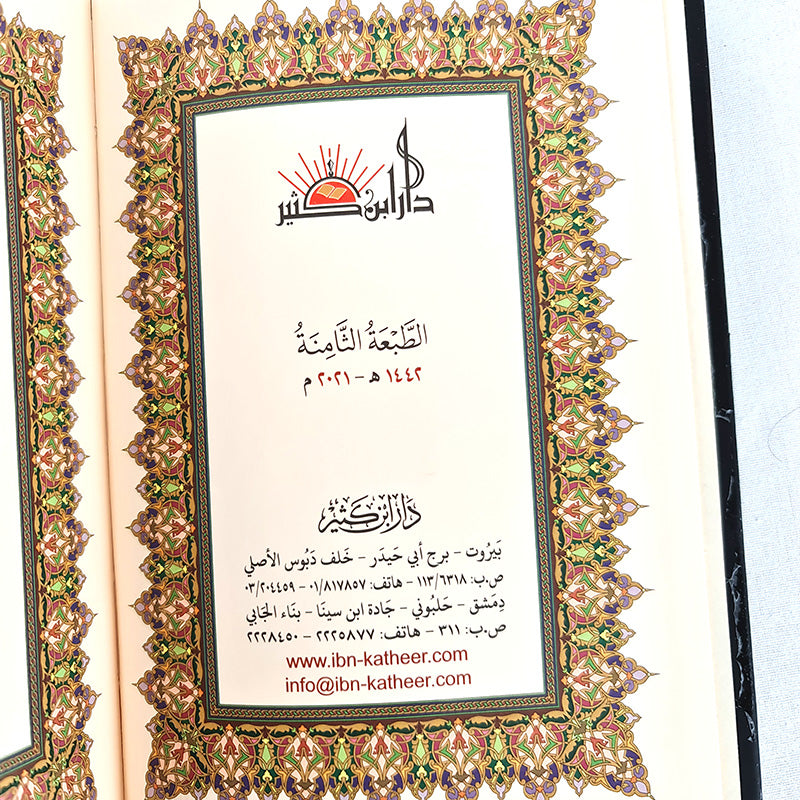 دار ابن كثير
الطَّبْعَةُ الثَّامِنَةُ
١٤٤٢ هـ - ٢٠٢١ م
دَار ابن كَثير
بَيرُوت - برج أبي حَيدَر - خَلف دَبُوس الأصلي
ص.ب: ١١٣/٦٣١٨ - هاتف: ٠١/٨١٧٨٥٧ - ٠٣/٢٠٤٤٥٩
دِمَشق - حَلبُوني - جَادة ابن سينَا - بنَاء الجَابي
ص.ب: ٣١١ - هاتف: ٢٢٢٥٨٧٧ - ٢٢٢٨٤٥٠
www.ibn-katheer.com
info@ibn-katheer.com